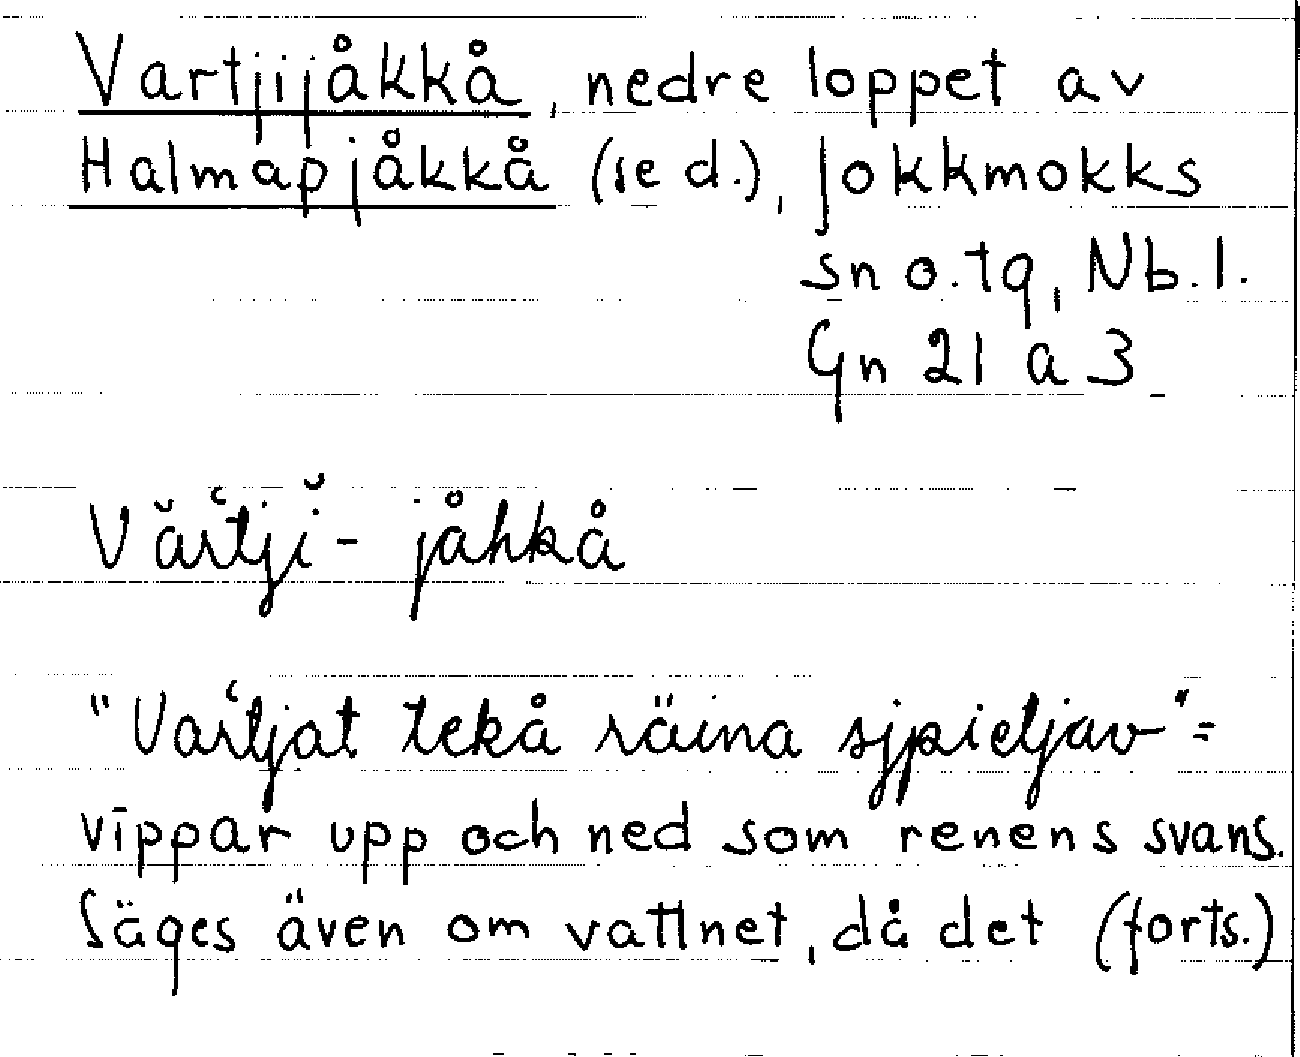 Vartjijåkkå, nedre loppet av
Halmapjåkkå (se d.), Jokkmokks
sn o. tg, Nb. l.
Gn 21 a 3
Vărʿtjĭ-jåhkå
"Varʿtjat tekå räina sjpietjav" =
vippar upp och ned som renens svans.
Säges även om vattnet, då det (forts.)